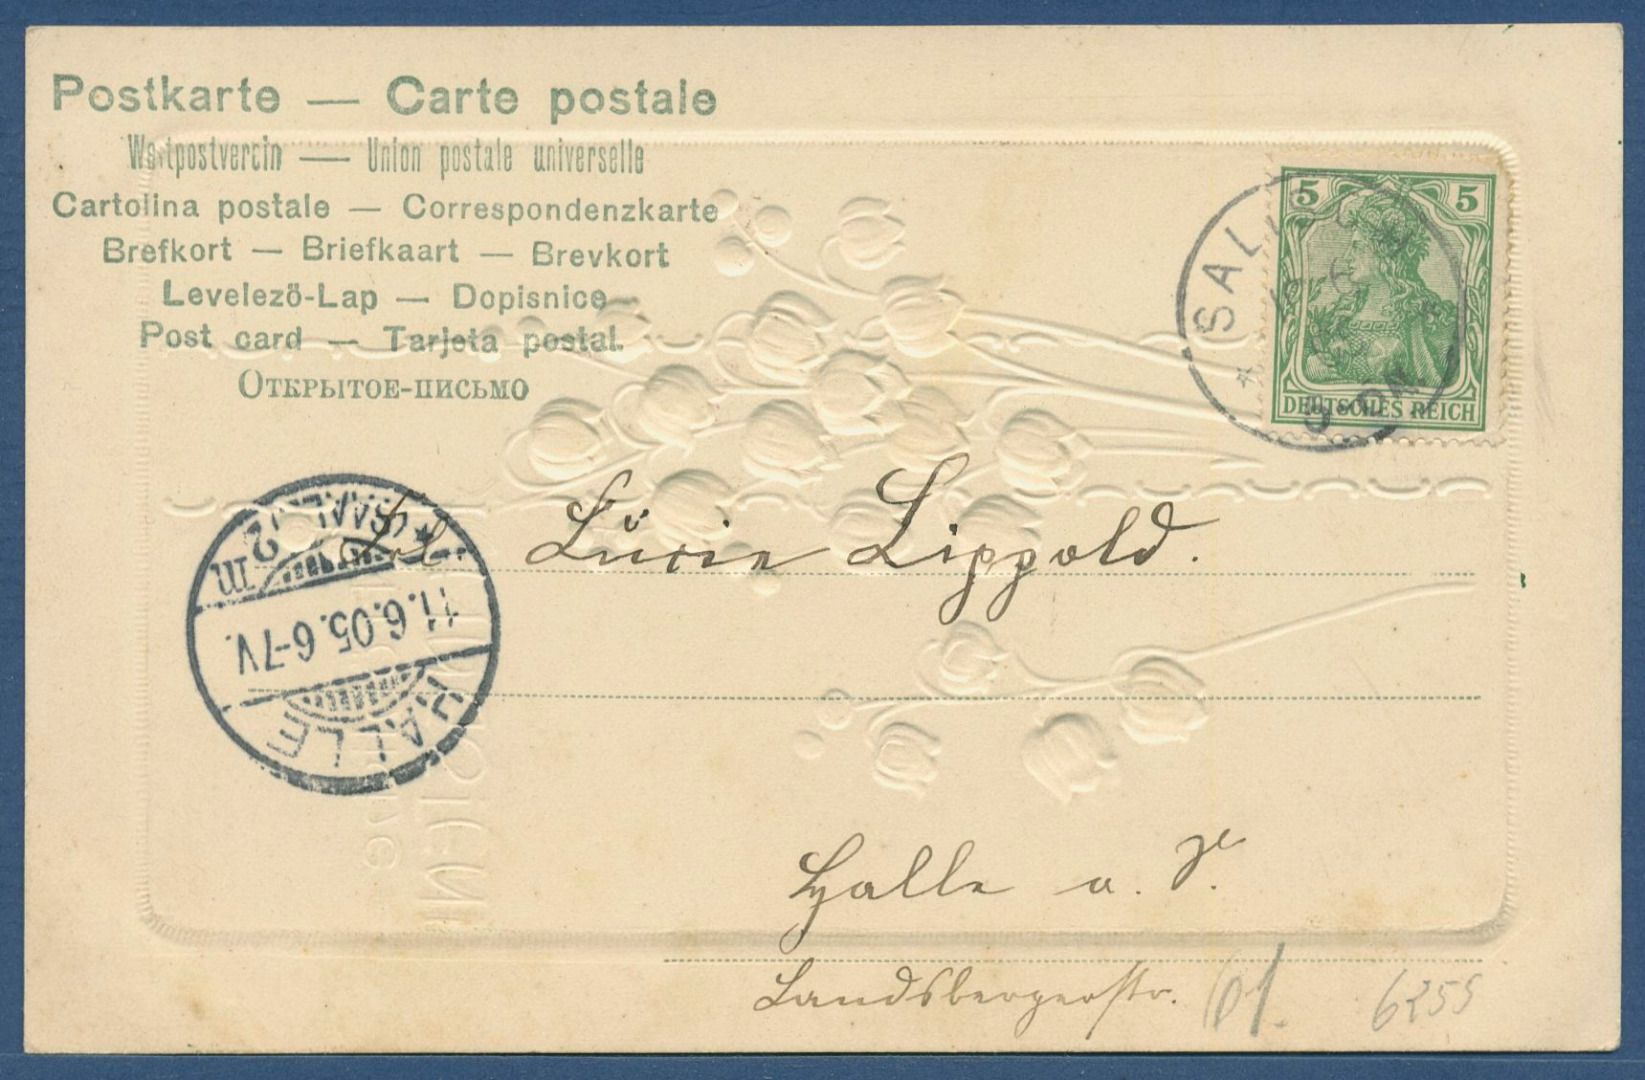 Postkarte — Carte postale
Weltpostverein — Union postale universelle
Cartolina postale — Correspondenzkarte
Brefkort — Briefkaart — Brevkort
Levelező-Lap — Dopisnice
Post card — Tarjeta postal
Открытое-письмо
5 5
DEUTSCHES REICH
* (SAALE) 2
m
11.6.05.6-7V.
HALLE
Frl Lucie Lippold.
Halle a. S.
Landsbergerstr. 61.
6255